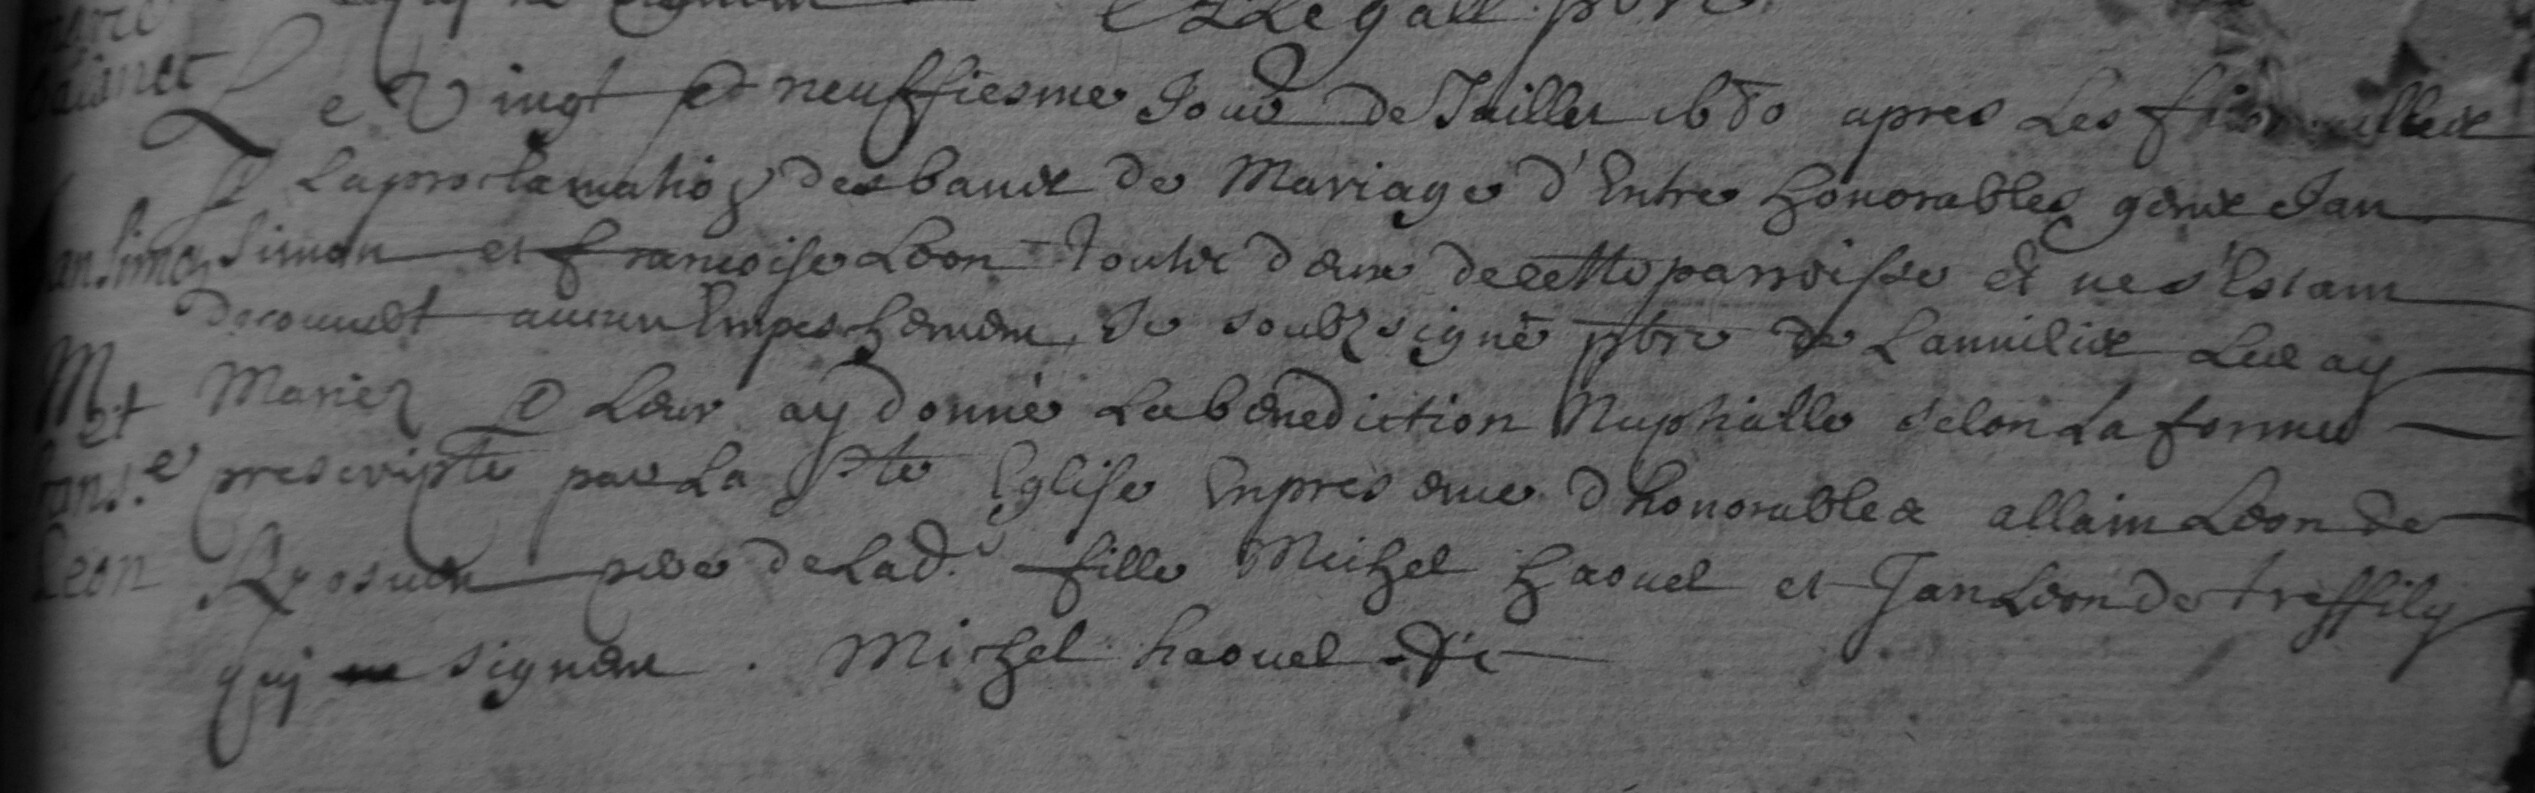 Le Vingt et neuffiesme Jour de Juillet 1680 apres Les fiansailles
Et La proclamation des bans de Mariage d'Entre honorables gens Jan
Simon et francoise Leon touts deux de cette parroisse et ne s'Estant
decouvert aucun Empeschement Je soubzsigné pbre de Lannilis Les ay
Mariez et Leur ay donné La benediction Nuptialle selon La forme
prescripte par La Ste Eglise En presence d'honorables allain Leon de
pere de Lad. fille Michel haouel et Jan Leon de treffily
quj ne signent . Michel haouel
Jan Simon
Mt
frans.e
Leon